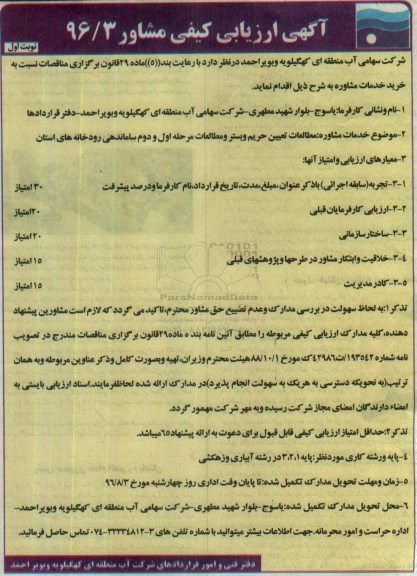 آگهی ارزیابی کیفی مشاور ۹۶/۳
نوبت اول
شرکت سهامی آب منطقه ای کهگیلویه وبویراحمد درنظر دارد با رعایت بند((۵))ماده ۲۹قانون برگزاری مناقصات نسبت به
خرید خدمات مشاوره به شرح ذیل اقدام نماید.
۱-نام ونشانی کارفرما:یاسوج-بلوار شهید مطهری-شرکت سهامی آب منطقه ای کهگیلویه وبویراحمد-دفتر قراردادها
۲-موضوع خدمات مشاوره:مطالعات تعیین حریم وبستر ومطالعات مرحله اول و دوم ساماندهی رودخانه های استان
۳-معیارهای ارزیابی وامتیاز آنها:
۳-۱-تجربه(سابقه اجرائی) باذکرعنوان ،مبلغ،مدت،تاریخ قرارداد،نام کارفرما ودرصد پیشرفت ۳۰ امتیاز
۳-۲-ارزیابی کارفرمایان قبلی ۲۰امتیاز
۳-۳-ساختارسازمانی ۲۰ امتیاز
۳-۴-خلاقیت وابتکار مشاور در طرحها وپژوهشهای قبلی ۱۵ امتیاز
۳-۵-کادر مدیریت ۱۵ امتیاز
ParsNamadData
تذکر۱:به لحاظ سهولت در بررسی مدارک وعدم تضییع حق مشاور محترم،تاکید می گردد که لازم است مشاورین پیشنهاد
دهنده،کلیه مدارک ارزیابی کیفی مربوطه را مطابق آئین نامه بند ه ماده۲۹قانون برگزاری مناقصات مندرج در تصویب
نامه شماره ۱۹۳۵۴۲/ت۴۲۹۸۶ک مورخ ۸۸/۱۰/۱هیئت محترم وزیران،تهیه وبصورت کامل وذکر عناوین مربوطه وبه همان
ترتیب(به نحویکه دسترسی به هریک به سهولت انجام پذیرد)در مدارک ارائه شده لحاظ فرمایند.اسناد ارزیابی بایستی به
امضاء دارندگان امضای مجاز شرکت رسیده وبه مهر شرکت مهمور گردد.
تذکر۲:حداقل امتیاز ارزیابی کیفی قابل قبول برای دعوت به ارائه پیشنهاد۶۵میباشد.
۴-پایه ورشته کاری موردنظر:پایه ۳،۲،۱ در رشته آبیاری وزهکشی
۵-زمان ومهلت تحویل مدارک تکمیل شده:تا پایان وقت اداری روز چهارشنبه مورخ ۹۶/۸/۳
۶-محل تحویل مدارک تکمیل شده:یاسوج-بلوار شهید مطهری-شرکت سهامی آب منطقه ای کهگیلویه وبویراحمد-
اداره حراست و امور محرمانه.جهت اطلاعات بیشتر میتوانید با شماره تلفن های ۳-۳۳۳۳۴۸۱۲-۰۷۴ تماس حاصل فرمائید.
دفتر فنی و امور قراردادهای شرکت آب منطقه ای کهگیلویه وبویر احمد